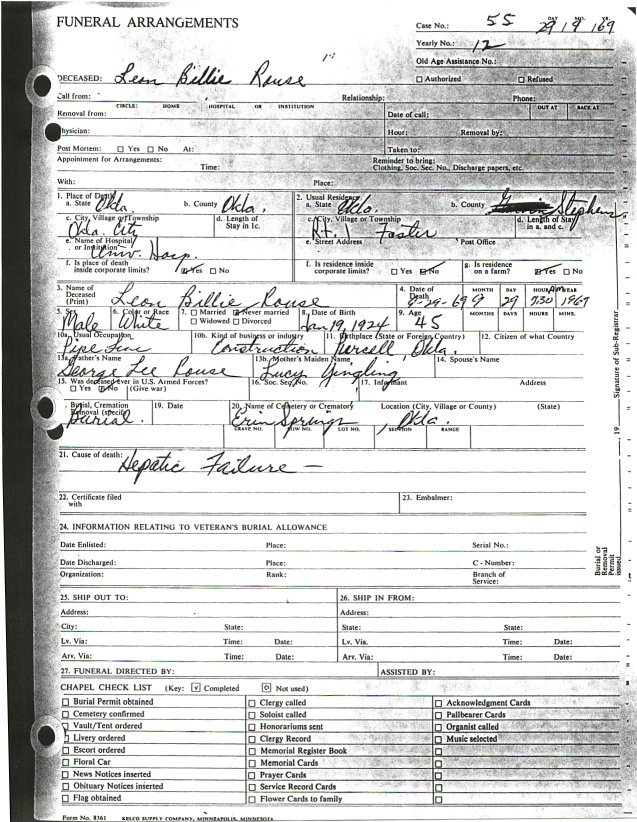 FUNERAL ARRANGEMENTS
Case No.: 55 DAY MO. YR.
29 9 69
Yearly No.: 12
Old Age Assistance No.:
DECEASED: Leon Billie Rouse
☐ Authorized ☐ Refused
Call from: Relationship: Phone:
CIRCLE: HOME HOSPITAL OR INSTITUTION OUT AT BACK AT
Removal from: Date of call:
Physician: Hour: Removal by:
Post Mortem: ☐ Yes ☐ No At: Taken to:
Appointment for Arrangements: Time: Reminder to bring:
Clothing, Soc. Sec. No., Discharge papers, etc.
With: Place:
1. Place of Death 2. Usual Residence
a. State Okla. b. County Okla. a. State Okla. b. County Stephens
c. City, Village or Township Okla. City d. Length of Stay in 1c. c. City, Village or Township Rt. 1 Foster d. Length of Stay in a. and c.
e. Name of Hospital or Institution Univ. Hosp. e. Street Address Post Office
f. Is place of death inside corporate limits? ☑ Yes ☐ No f. Is residence inside corporate limits? ☐ Yes ☑ No g. Is residence on a farm? ☑ Yes ☐ No
3. Name of Deceased (Print) Leon Billie Rouse 4. Date of Death 9-29-69 MONTH DAY HOUR AM YEAR
9 29 7:30 1969
5. Sex Male 6. Color or Race White 7. ☐ Married ☑ Never married ☐ Widowed ☐ Divorced 8. Date of Birth Jan 19, 1924 9. Age 45 MONTHS DAYS HOURS MINS.
10a. Usual Occupation Pipe Line 10b. Kind of business or industry Construction 11. Birthplace (State or Foreign Country) Purcell, Okla. 12. Citizen of what Country
13a. Father's Name George Lee Rouse 13b. Mother's Maiden Name Lucy Yingling 14. Spouse's Name
15. Was deceased ever in U.S. Armed Forces? ☐ Yes ☑ No (Give war) 16. Soc. Sec. No. 17. Informant Address
Burial, Cremation Removal (specify) Burial. 19. Date 20. Name of Cemetery or Crematory Erin Springs Location (City, Village or County) Okla. (State)
GRAVE NO. ROW NO. LOT NO. SECTION RANGE
21. Cause of death: Hepatic Failure –
22. Certificate filed with 23. Embalmer:
24. INFORMATION RELATING TO VETERAN'S BURIAL ALLOWANCE
Date Enlisted: Place: Serial No.:
Date Discharged: Place: C - Number:
Organization: Rank: Branch of Service:
25. SHIP OUT TO: 26. SHIP IN FROM:
Address: Address:
City: State: State: State:
Lv. Via: Time: Date: Lv. Via: Time: Date:
Arv. Via: Time: Date: Arv. Via: Time: Date:
27. FUNERAL DIRECTED BY: ASSISTED BY:
CHAPEL CHECK LIST (Key: ☑ Completed ☐ Not used)
☐ Burial Permit obtained ☐ Clergy called ☐ Acknowledgment Cards
☐ Cemetery confirmed ☐ Soloist called ☐ Pallbearer Cards
☐ Vault/Tent ordered ☐ Honorariums sent ☐ Organist called
☐ Livery ordered ☐ Clergy Record ☐ Music selected
☐ Escort ordered ☐ Memorial Register Book ☐
☐ Floral Car ☐ Memorial Cards ☐
☐ News Notices inserted ☐ Prayer Cards ☐
☐ Obituary Notices inserted ☐ Service Record Cards ☐
☐ Flag obtained ☐ Flower Cards to family ☐
Form No. 8361 KELCO SUPPLY COMPANY, MINNEAPOLIS, MINNESOTA
Burial or Removal Permit issued 19 Signature of Sub-Registrar